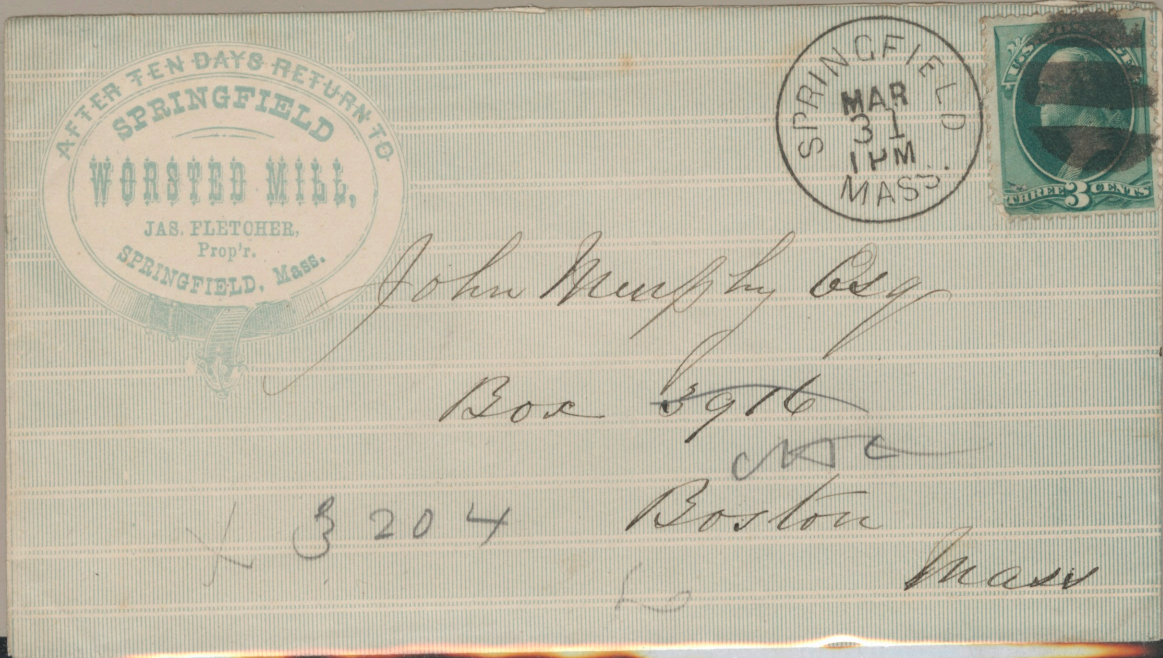 AFTER TEN DAYS RETURN TO
SPRINGFIELD
WORSTED MILL,
JAS. FLETCHER,
Prop'r.
SPRINGFIELD, Mass.
SPRINGFIELD
MAR
31
1 PM
MASS.
THREE 3 CENTS
John Murphy Esq
Box 3916
Boston
Mass
3204